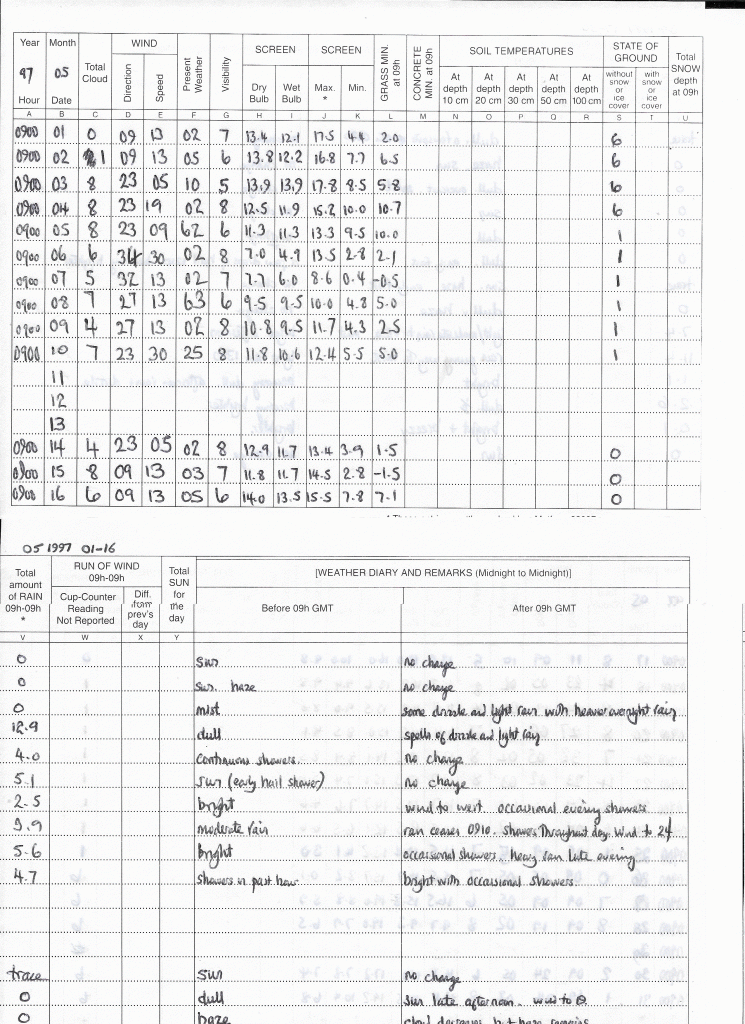 Year Month Total Cloud WIND Present Weather Visibility SCREEN SCREEN GRASS MIN. at 09h CONCRETE MIN. at 09h SOIL TEMPERATURES STATE OF GROUND Total SNOW depth at 09h
97 05 Direction Speed Dry Bulb Wet Bulb Max. * Min. At depth 10 cm At depth 20 cm At depth 30 cm At depth 50 cm At depth 100 cm without snow or ice cover with snow or ice cover
Hour Date
A B C D E F G H I J K L M N O P Q R S T U
0900 01 0 09 13 02 7 13.4 12.1 17.5 4.4 2.0 6
0900 02 1 09 13 05 6 13.8 12.2 16.8 7.7 6.5 6
0900 03 8 23 05 10 5 13.9 13.9 17.8 8.5 5.8 6
0900 04 8 23 19 02 8 12.5 11.9 15.2 10.0 10.7 6
0900 05 8 23 09 62 6 11.3 11.3 13.3 9.5 10.0 1
0900 06 6 34 30 02 8 7.0 4.9 13.5 2.8 2.1 1
0900 07 5 32 13 02 7 7.7 6.0 8.6 0.4 -0.5 1
0900 08 7 27 13 63 6 9.5 9.5 10.0 4.8 5.0 1
0900 09 4 27 13 02 8 10.8 9.5 11.7 4.3 2.5 1
0900 10 7 23 30 25 8 11.8 10.6 12.4 5.5 5.0 1
11
12
13
0900 14 4 23 05 02 8 12.9 11.7 13.4 3.9 1.5 0
0900 15 8 09 13 03 7 11.8 11.7 14.5 2.8 -1.5 0
0900 16 6 09 13 05 6 14.0 13.5 15.5 7.8 7.1 0
05 1997 01-16
Total amount of RAIN 09h-09h * RUN OF WIND 09h-09h Total SUN for the day [WEATHER DIARY AND REMARKS (Midnight to Midnight)]
Cup-Counter Reading Not Reported Diff. from prev's day Before 09h GMT After 09h GMT
V W X Y
0 sun no change
0 sun. haze no change
0 mist some drizzle and light rain with heavier overnight rain
12.9 dull spells of drizzle and light rain
4.0 continuous showers no change
5.1 sun (early hail shower) no change
2.5 bright wind to west. occassional evening showers
3.9 moderate rain rain ceases 0910. showers throughout day. Wind to 24
5.6 bright occassional showers. heavy rain late evening
4.7 showers in past hour bright with occassional showers.
trace sun no change
0 dull sun late afternoon. wind to
0 haze cloud decreases but haze remains